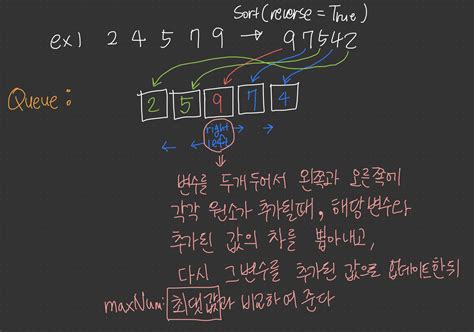 Sort(reverse = True)
ex1 2 4 5 7 9 → 9 7 5 4 2
Queue: 2 5 9 7 4
right
left
변수를 두개두어서 왼쪽과 오른쪽에
각각 원소가 추가될때, 해당변수와
추가된 값의 차를 뽑아내고,
다시 그변수를 추가된 값으로 업데이트한뒤
maxNum: 최댓값과 비교하여 준다